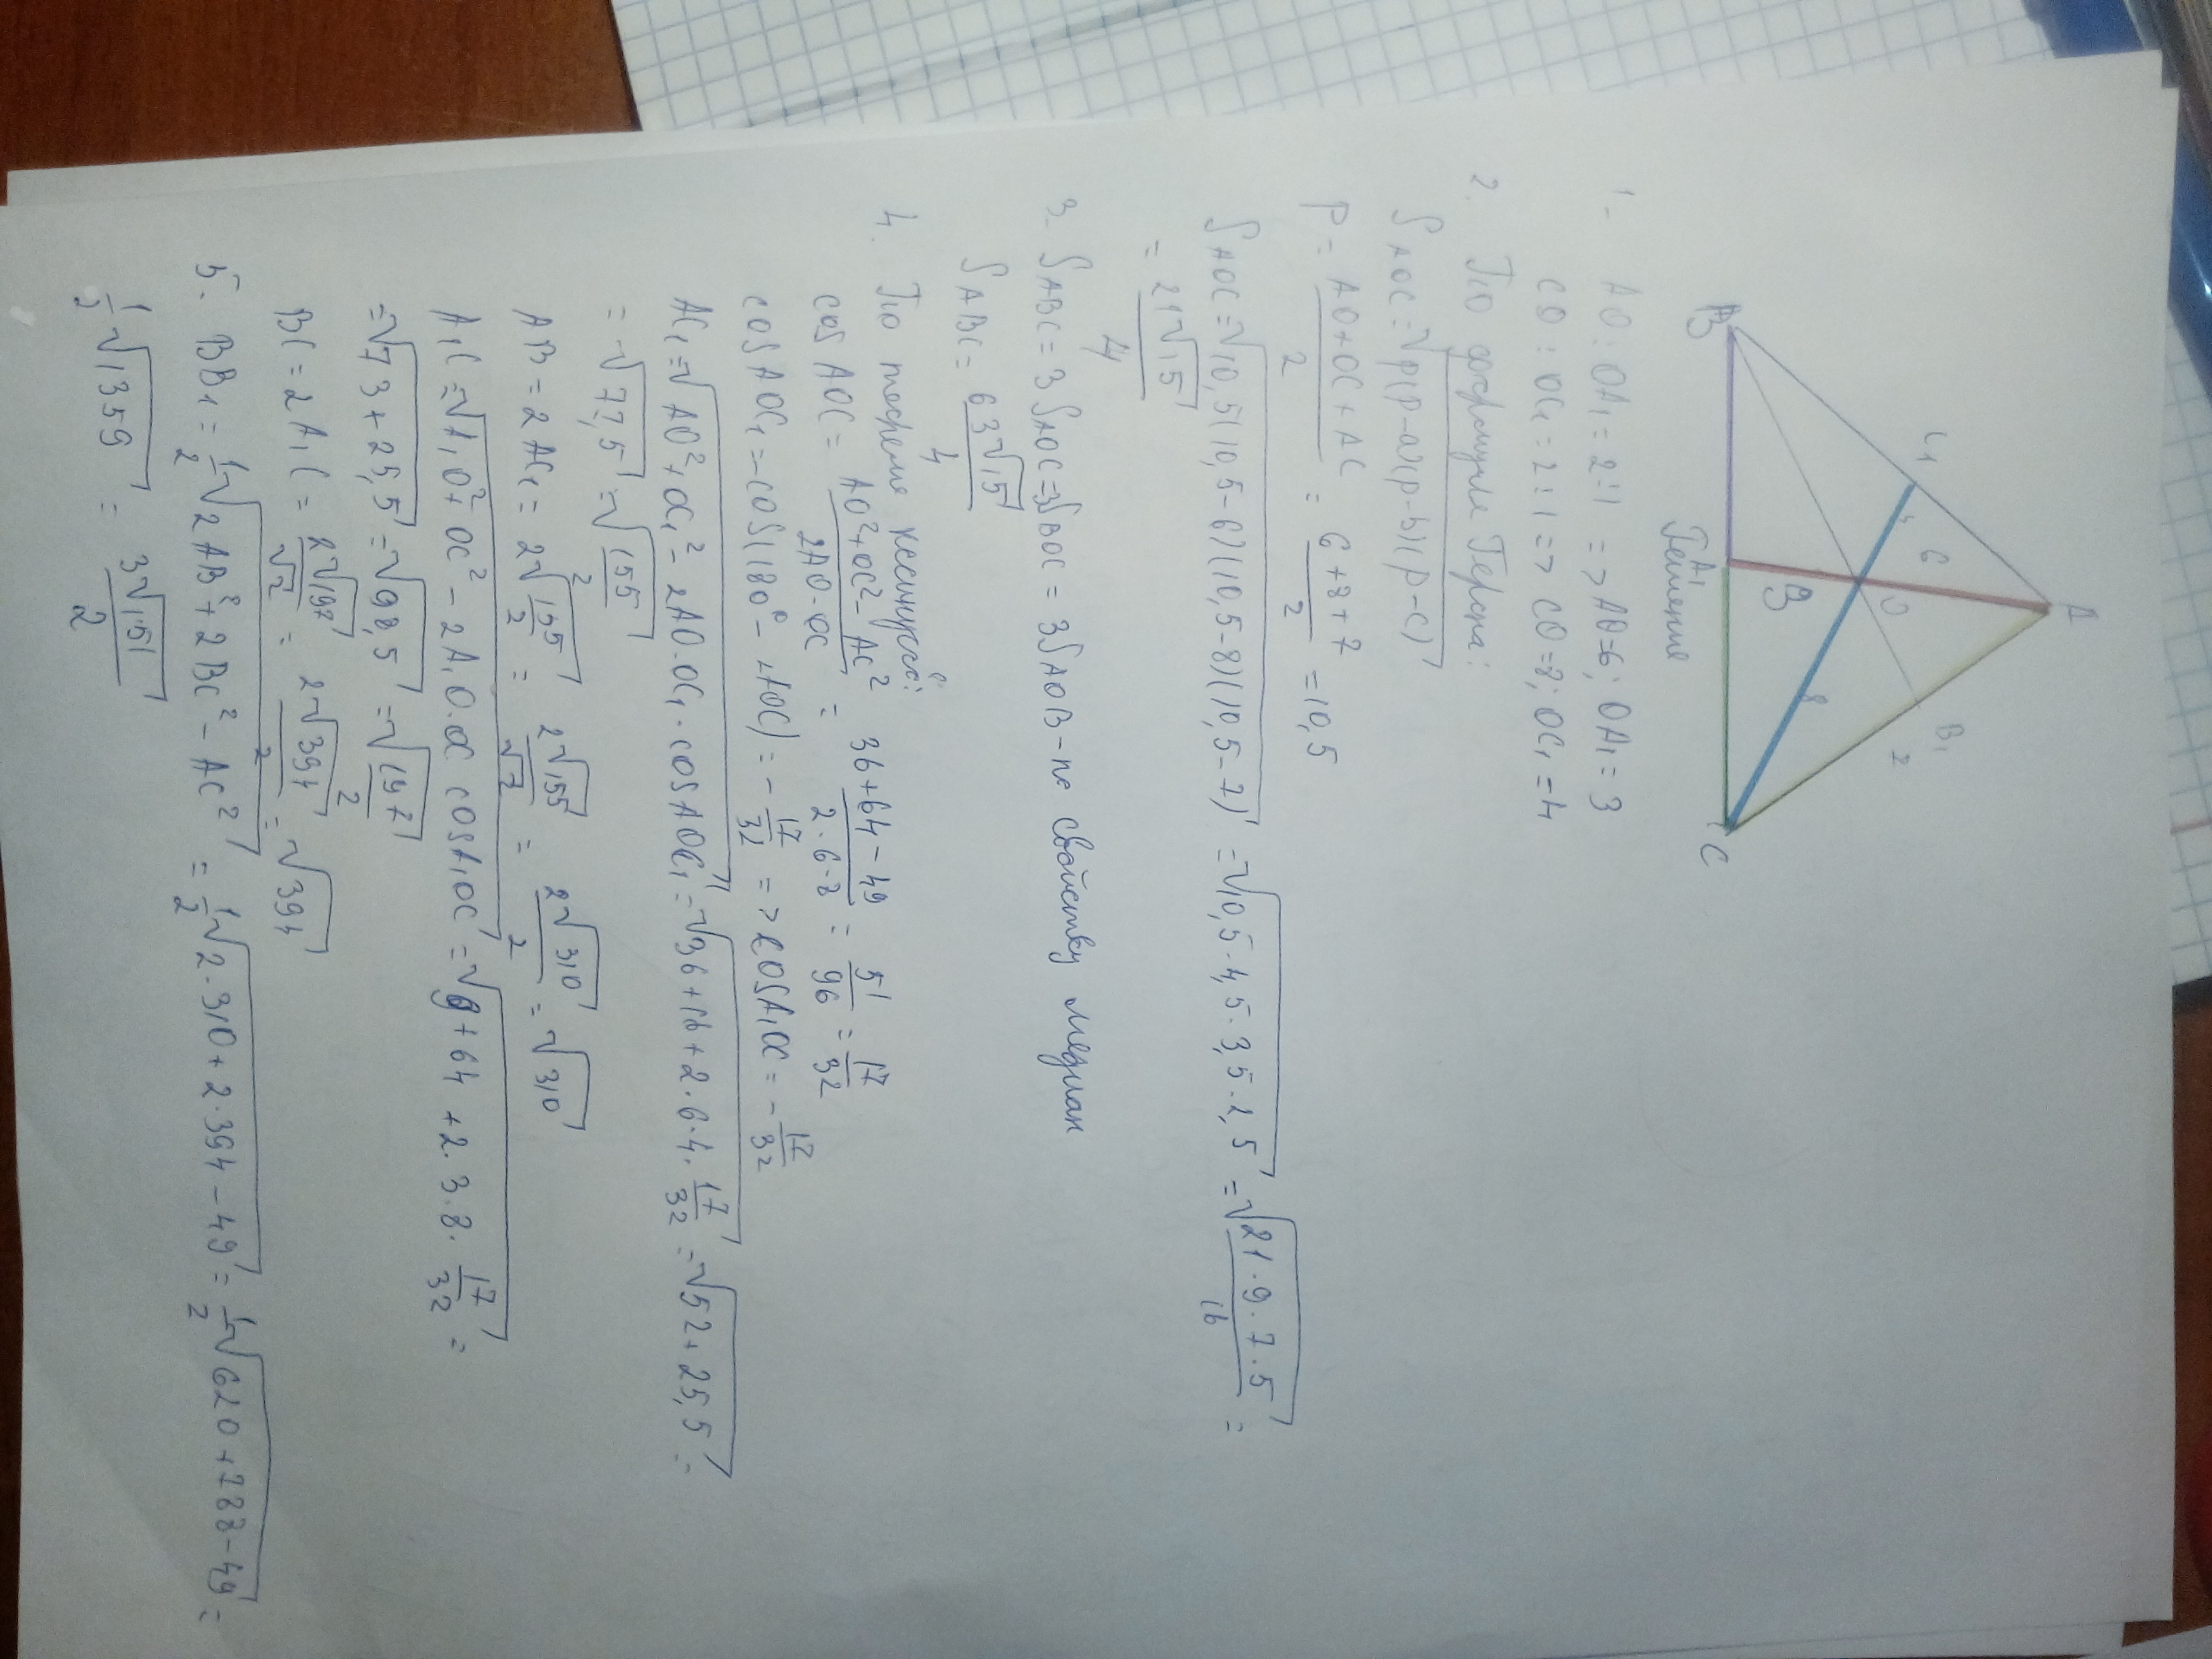 A
C₁
6
B₁
O
4
2
8
3
B
A₁
C
Решение
1. AO : OA₁ = 2:1 => AO=6; OA₁ = 3
CO : OC₁ = 2:1 => CO=8; OC₁ = 4
2. По формуле Герона:
S AOC = √p(p-a)(p-b)(p-c)
P = (AO+OC+AC)/2 = (6+8+7)/2 = 10,5
S AOC = √10,5(10,5-6)(10,5-8)(10,5-7) = √10,5·4,5·3,5·2,5 = √(21·9·7·5)/16 =
= 21√15/4
3. S ABC = 3 S AOC = 3S BOC = 3S AOB - по свойству медиан
S ABC = 63√15/4
4. По теореме косинусов:
cos AOC = (AO²+OC²-AC²)/(2AO·OC) = (36+64-49)/(2·6·8) = 51/96 = 17/32
cos AOC₁ = -cos(180° - AOC) = -17/32 => cos A₁OC = -17/32
AC₁ = √AO²+OC₁² - 2AO·OC₁·cos AOC₁ = √36+16+2·6·4·17/32 = √52+25,5 =
= √77,5 = √155/2
AB = 2AC₁ = 2√155/2 = 2√155/√2 = 2√310/2 = √310
A₁C = √A₁O²+OC² - 2A₁O·OC cos A₁OC = √9+64+2·3·8·17/32 =
= √73+25,5 = √98,5 = √197/2
BC = 2A₁C = 2√197/√2 = 2√394/2 = √394
5. BB₁ = 1/2 √2AB²+2BC²-AC² = 1/2 √2·310+2·394-49 = 1/2 √620+788-49 =
1/2 √1359 = 3√151/2